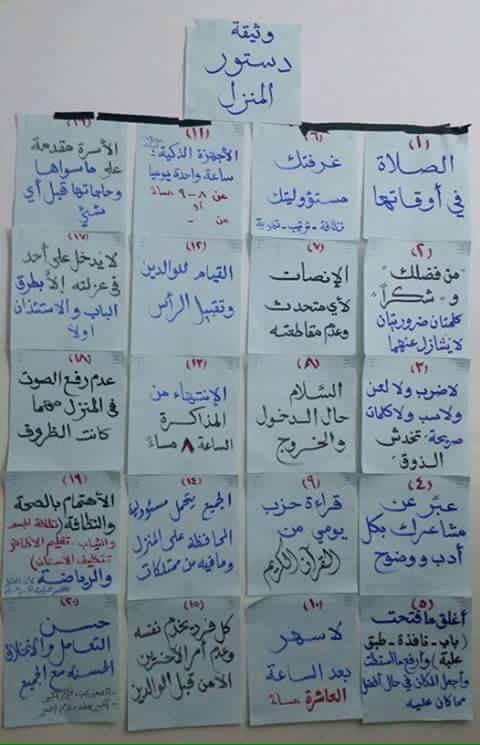 وثيقة
دستور
المنزل
(١)
الصلاة
في أوقاتها
(٢)
"من فضلك"
و "شكراً"
كلمتان ضروريتان
لا يتنازل عنهما
(٣)
لا ضرب ولا لعن
ولا سب ولا كلمات
صريحة تخدش
الذوق
(٤)
عبّر عن
مشاعرك بكل
أدب ووضوح
(٥)
أغلق ما فتحت
(باب - نافذة - طبق
علبة) وارفع ما أسقطت
واجعل المكان في حال أفضل
مما كان عليه
(٦)
غرفتك
مسؤوليتك
نظافة - ترتيب - تهوية
(٧)
الإنصات
لأي متحدث
وعدم مقاطعته
(٨)
السّلام
حال الدخول
والخروج
(٩)
قراءة حزب
يومي من
القرآن الكريم
(١٠)
لا سهر
بعد الساعة
العاشرة مساءً
(١١)
الأجهزة الذكية:
ساعة واحدة يوميا
من ٨-٩ مساءً
أو
من
(١٢)
القيام للوالدين
وتقبيل الرأس
(١٣)
الإنتهاء من
المذاكرة
الساعة ٨ مساءً
(١٤)
الجميع يتحمل مسئولية
المحافظة على المنزل
وما فيه من ممتلكات
(١٥)
كل فرد يخدم نفسه
وعدم أمر الآخرين
الأمن قبل الوالدين
(١٦)
الأسرة مقدمة
على ما سواها
وحاجاتها قبل أي
شيء
(١٧)
لا يدخل على أحد
في عزلته إلا بطرق
الباب والاستئذان
أولاً
(١٨)
عدم رفع الصوت
في المنزل مهما
كانت الظروف
(١٩)
الأهتمام بالصحة
والنظافة (نظافة الجسد
والثياب - تقليم الأظافر
تنظيف الأسنان)
والرياضة
(٢٠)
حسن
التعامل والأخلاق
الحسنة مع الجميع